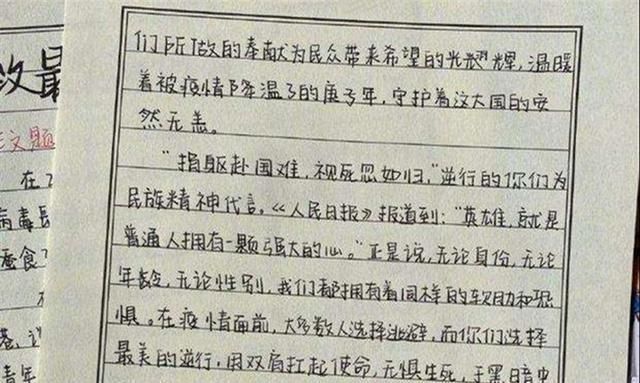 们所做的奉献为民众带来希望的光耀辉,温暖
着被疫情降温了的庚子年,守护着泱大国的安
然无恙。
"捐躯赴国难,视死忽如归,"逆行的你们为
民族精神代言。《人民日报》报道到:"英雄,就是
普通人拥有一颗强大的心。"正是说,无论身份,无论
年龄,无论性别,我们都拥有着同样的软肋和恐
惧。在疫情面前,大多数人选择逃避,而你们选择
最美的逆行,用双肩扛起使命,无惧生死,于黑暗中
改最
文题
在
病毒
蚕食
巷,
青年